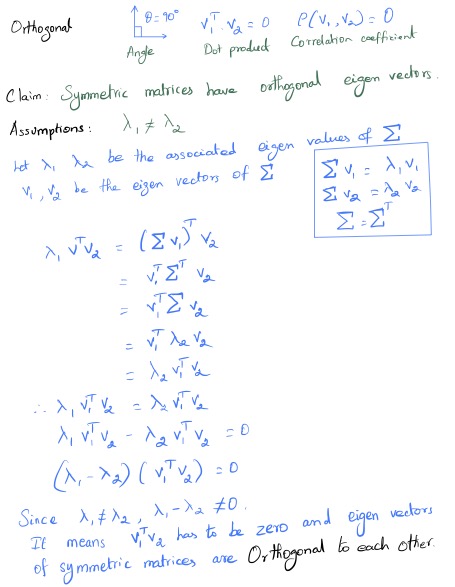 Orthogonal θ = 90° v₁ᵀ. v₂ = 0 ρ(v₁, v₂) = 0
Angle Dot product Correlation coefficient
Claim: Symmetric matrices have orthogonal eigen vectors.
Assumptions: λ₁ ≠ λ₂
Let λ₁ λ₂ be the associated eigen values of Σ
v₁, v₂ be the eigen vectors of Σ
Σ v₁ = λ₁ v₁
Σ v₂ = λ₂ v₂
Σ = Σᵀ
λ₁ vᵀv₂ = (Σ v₁)ᵀ v₂
= v₁ᵀ Σᵀ v₂
= v₁ᵀ Σ v₂
= v₁ᵀ λ₂ v₂
= λ₂ v₁ᵀ v₂
∴ λ₁ v₁ᵀ v₂ = λ₂ v₁ᵀ v₂
λ₁ v₁ᵀ v₂ - λ₂ v₁ᵀ v₂ = 0
(λ₁ - λ₂) (v₁ᵀ v₂) = 0
Since λ₁ ≠ λ₂, λ₁ - λ₂ ≠ 0.
It means v₁ᵀ v₂ has to be zero and eigen vectors
of symmetric matrices are Orthogonal to each other.